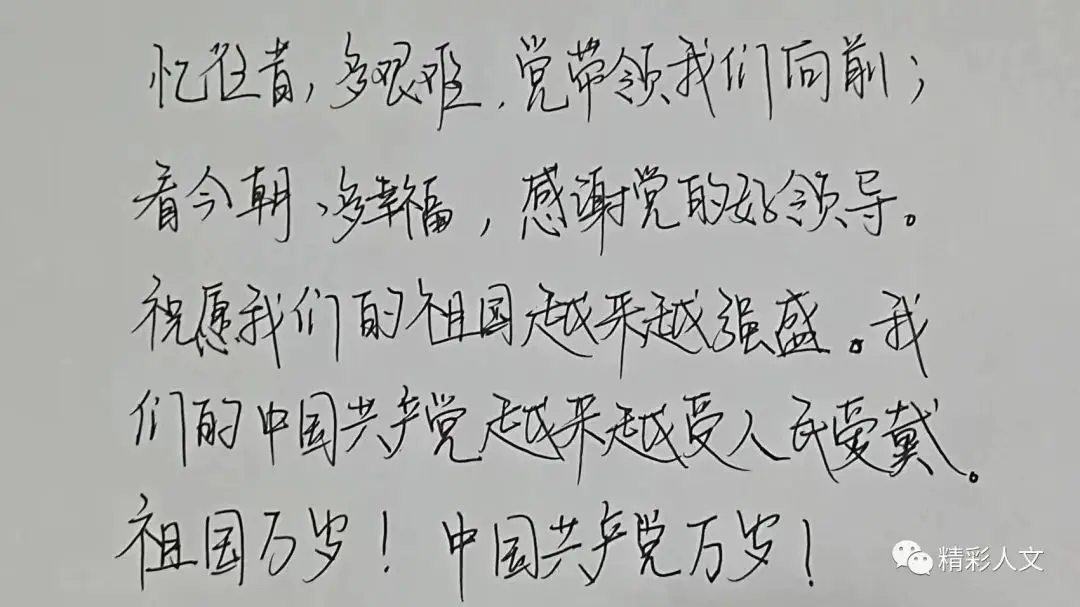 忆往昔，多艰难，党带领我们向前；
看今朝、多幸福，感谢党的好领导。
祝愿我们的祖国越来越强盛。我
们的中国共产党越来越受人民爱戴。
祖国万岁！中国共产党万岁！
精彩人文